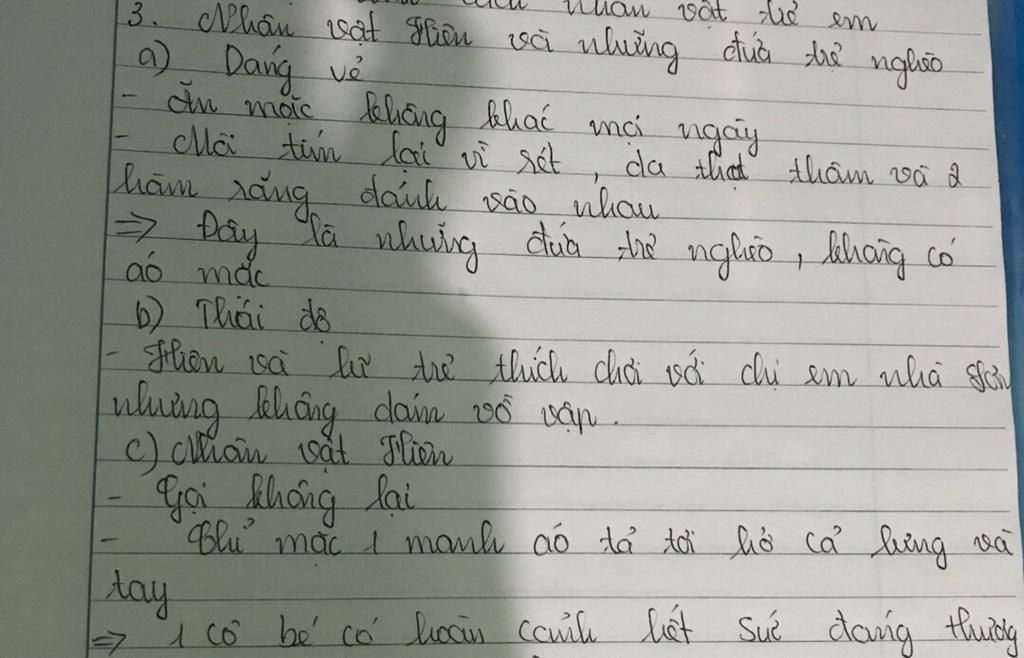 cách nhân vật trẻ em
3. Nhân vật Hiên và những đứa trẻ nghèo
a) Dáng vẻ
- Ăn mặc không khác mọi ngày
- Môi tím lại vì rét, da thịt thâm và 2
hàm răng đánh vào nhau
=> Đây là những đứa trẻ nghèo, không có
áo mặc
b) Thái độ
- Hiên và lũ trẻ thích chơi với chị em nhà Sơn
nhưng không dám vồ vập.
c) Nhân vật Hiên
- Gọi không lại
- Chỉ mặc 1 manh áo tả tơi hở cả lưng và
tay
=> 1 cô bé có hoàn cảnh hết sức đáng thương